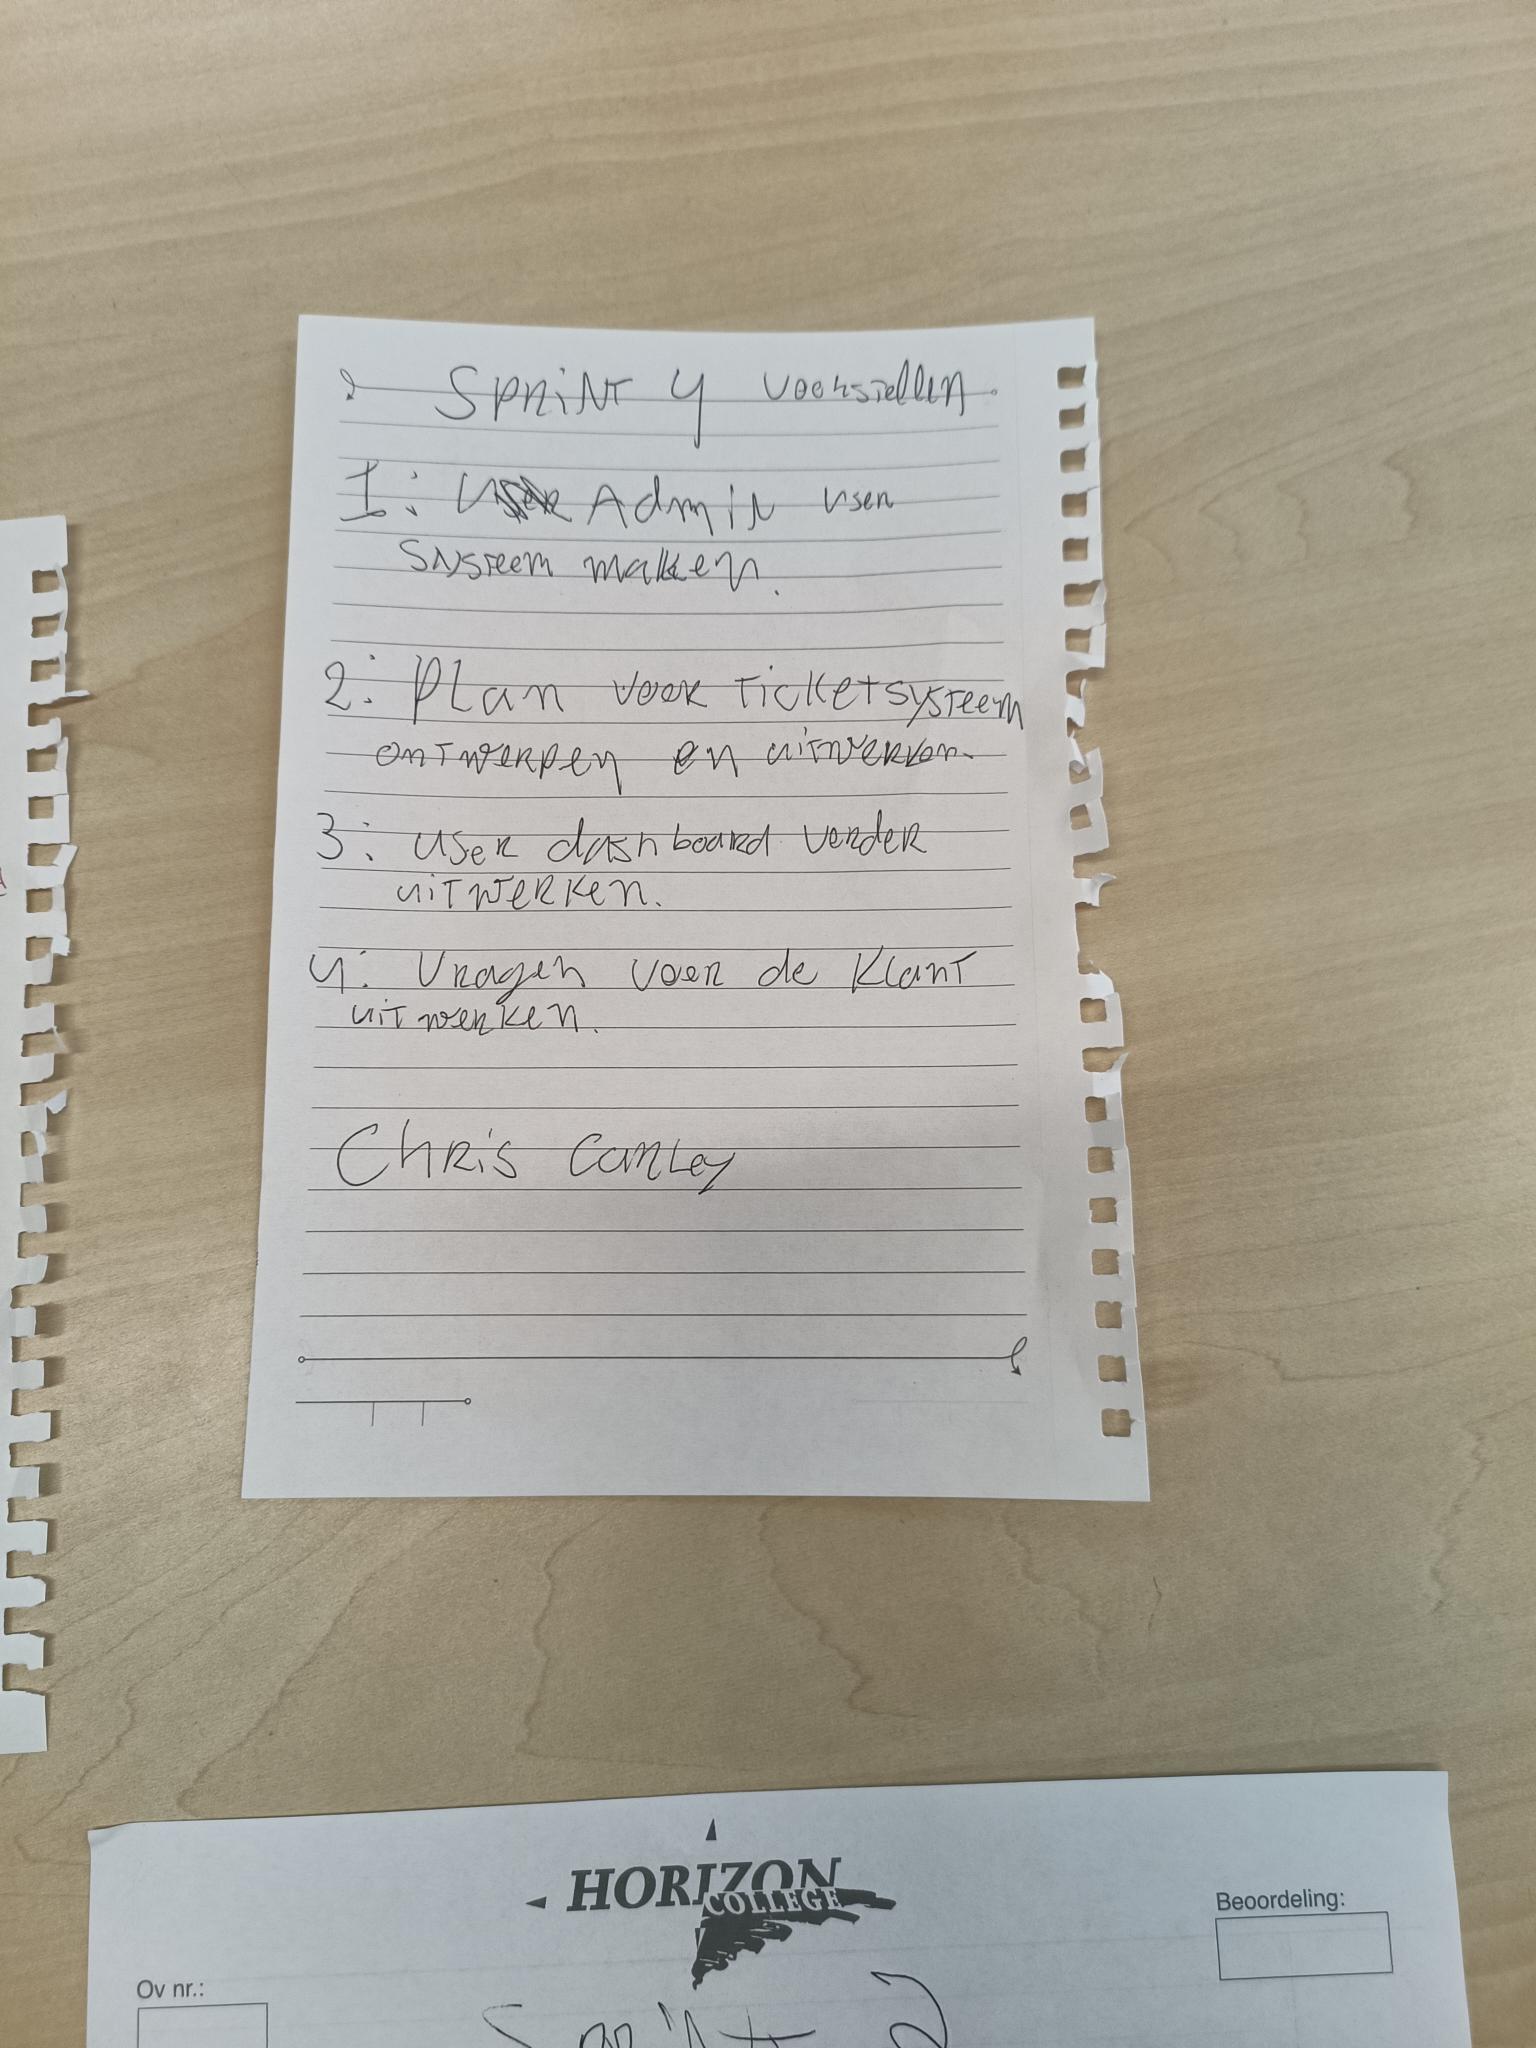 Sprint 4 voorstellen
1: Admin user
systeem maken.
2: Plan voor ticketsysteem
ontwerpen en uitwerken.
3: user dashboard verder
uitwerken.
4: Vragen voor de klant
uitwerken.
Chris Canley
HORIZON
COLLEGE
Beoordeling:
Ov nr.:
Sprint 2